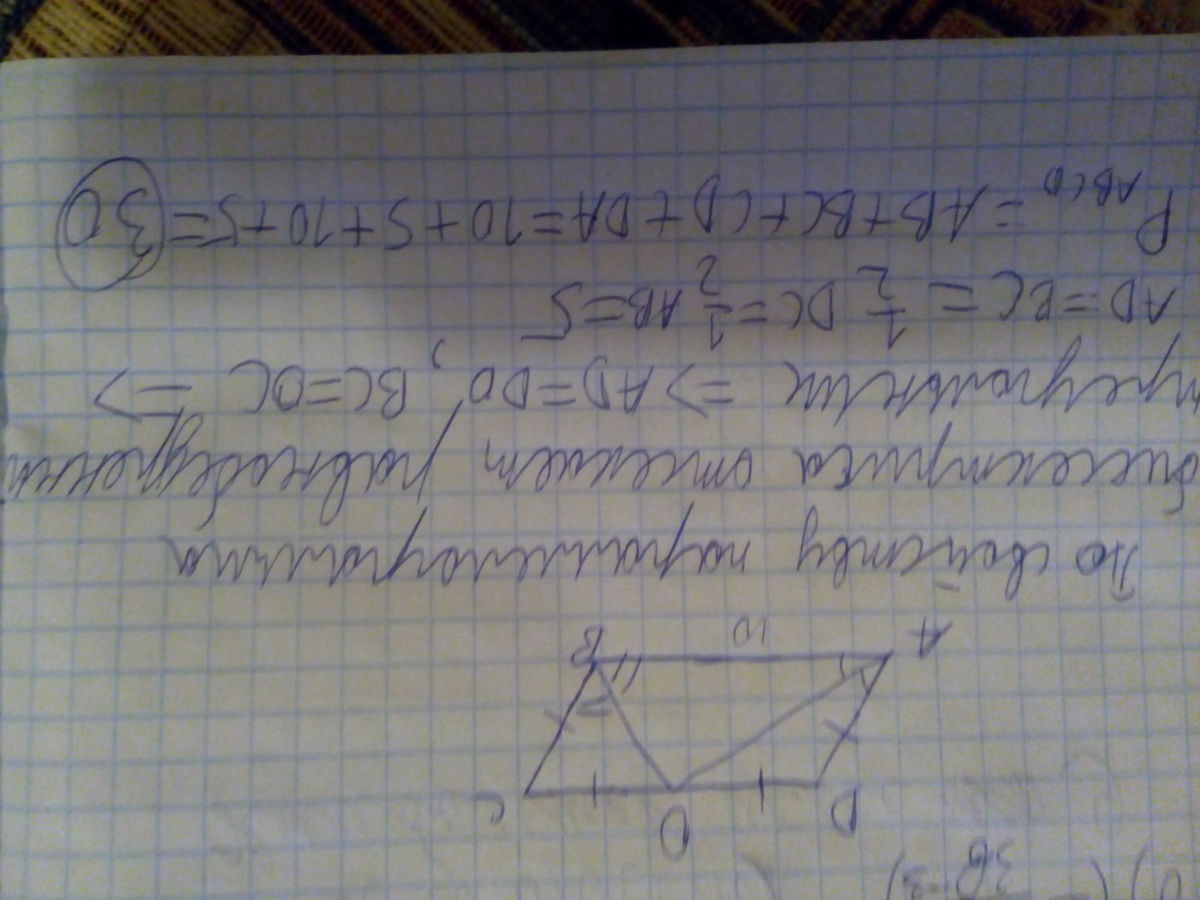 D O C
A 10 B
По свойству параллелограмма
биссектриса отсекает равнобедренный
треугольник => AD=DO, BC=OC =>
AD=BC = 1/2 DC = 1/2 AB=5
P ABCD = AB+BC+CD+DA=10+5+10+5=30